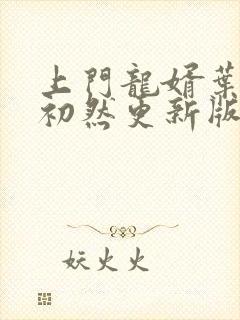 上門龍婿葉
初然更新版
妖火火